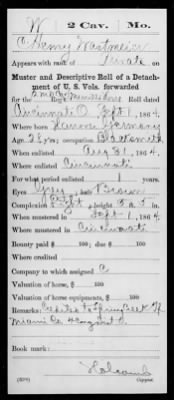 W 2 Cav. Mo.
Henry Wastmeier
Appears with rank of Private on
Muster and Descriptive Roll of a Detachment
of U. S. Vols. forwarded
for the Roll dated
Cincinnati O. Sept 1, 1864.
Where born Germany
Age 38 y'rs; occupation Blacksmith
When enlisted Aug 31, 1864.
Where enlisted Cincinnati
For what period enlisted 1 years.
Eyes Grey ; hair Brown
Complexion ; height 5 ft. in.
When mustered in Sept 1, 1864.
Where mustered in Cincinnati
Bounty paid $ 100; due $ 100
Where credited
Company to which assigned C
Valuation of horse, $ 100
Valuation of horse equipments, $ 100
Remarks: Credited to Springcreek
Miami Co. 4 Cong
Book mark:
Holcomb
Copyist.